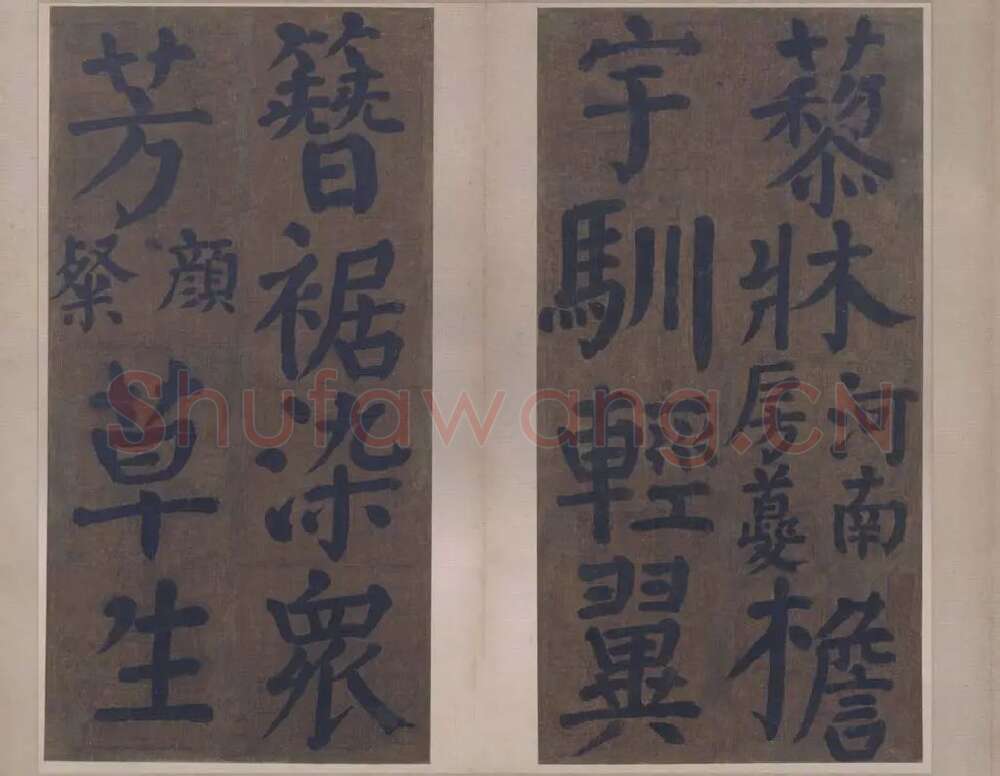 藜牀河南房夔檐
宇馴輕翼
簪裾染眾
芳顏粲草生
Shufawang.CN